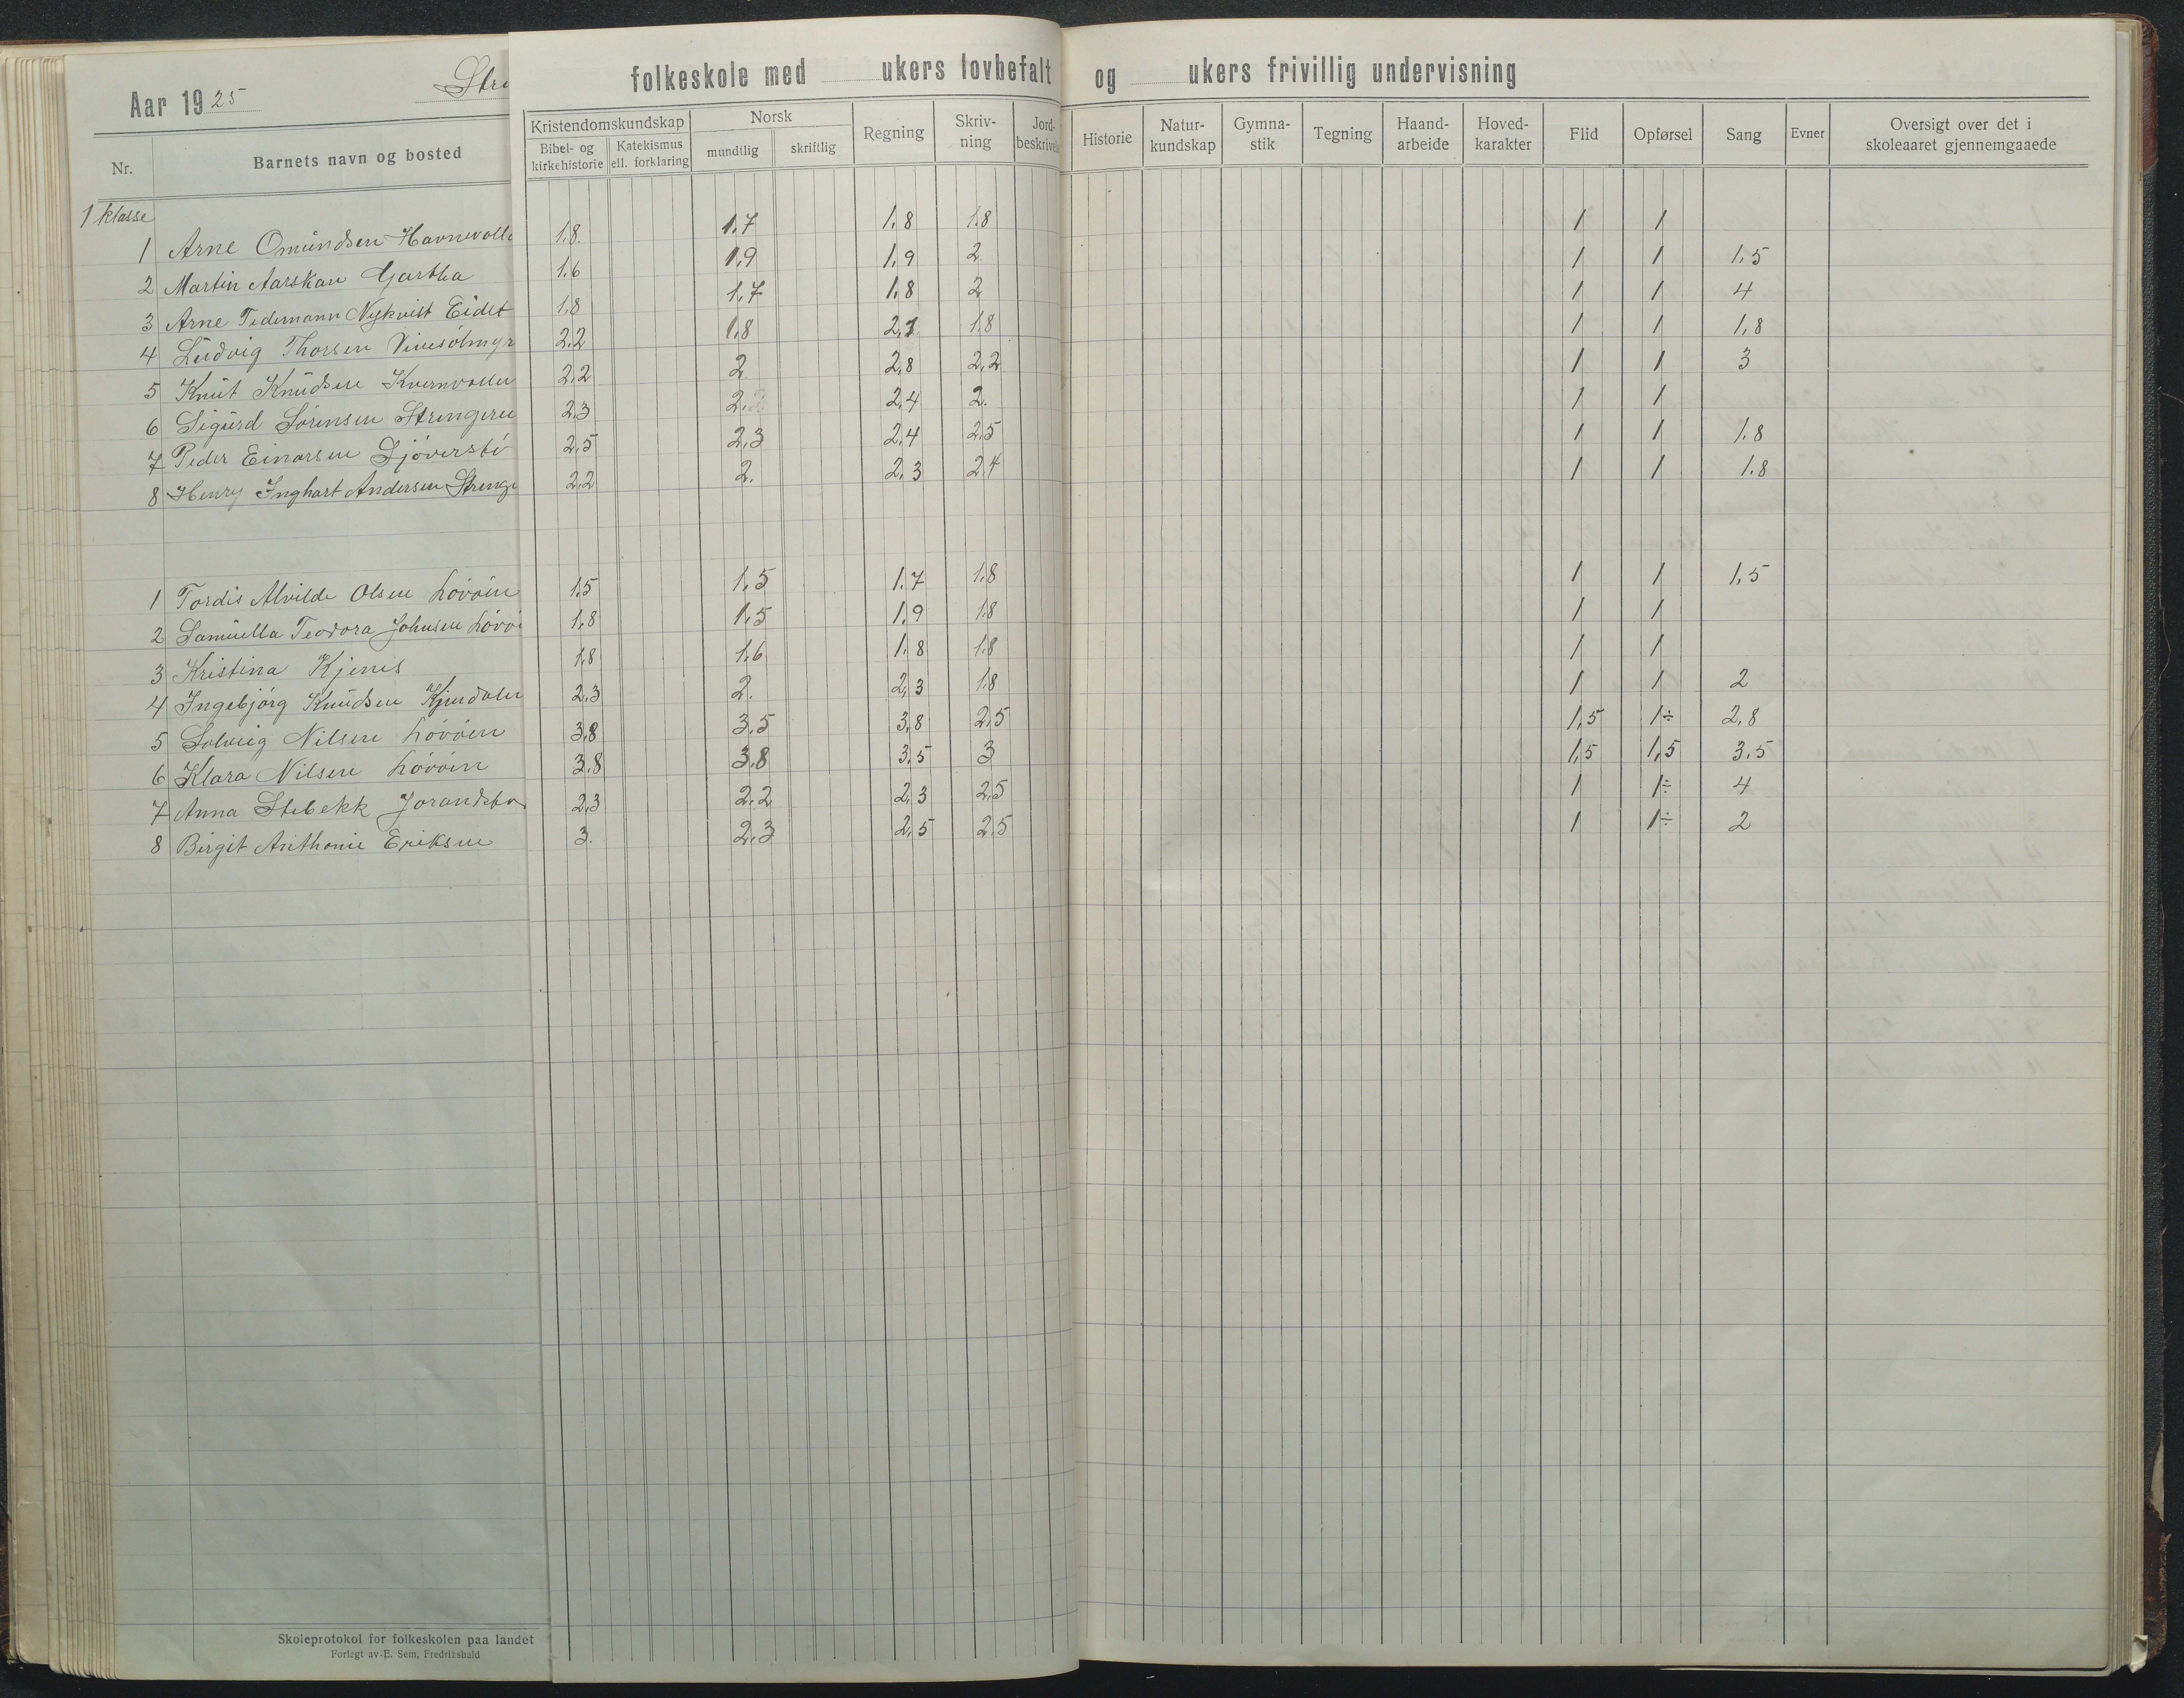 folkeskole med ukers lovbefalt og ukers frivillig undervisning
Aar 1925 Stre
Nr. Barnets navn og bosted
Kristendomskundskap Norsk Regning Skriv-ning Jord-beskrivelse Historie Natur-kundskap Gymna-stik Tegning Haand-arbeide Hoved-karakter Flid Opførsel Sang Evner Oversigt over det i skoleaaret gjennemgaaede
Bibel- og kirkehistorie Katekismus ell. forklaring mundtlig skriftlig
1 klasse
1 Arne Omundsen Havnevolle 1.8. 1.7 1,8 1.8 1 1
2 Martin Aarskau Gartha 1.6 1.9 1,9 2. 1 1 1,5
3 Arne Tedemann Nykvist Eidet 1.8 1,7 1.8 2 1 1 4
4 Ludvig Thorsen 2.2 1.8 2,1 1.8 1 1 1,8
5 Knut Knudsen Kvernvollen 2,2 2 2,8 2,2 1 1 3
6 Sigurd Sørensen Strengeree 2.3 2.2 2,4 2. 1 1
7 Peder Einarsen Sjøverstø 2,5 2,3 2,4 2,5 1 1 1.8
8 Henry Inghart Andersen Strenge 2.2 2. 2,3 2,4 1 1 1.8
1 Tordis Alvilde Olsen Løvøin 1.5 1,5 1.7 1.8 1 1 1,5
2 Samuella Teodora Johnsen Løvøi 1,8 1,5 1,9 1.8 1 1
3 Kristina Kjenes 1.8 1.6 1.8 1.8 1 1
4 Ingebjørg Knudsen Kjendalen 2.3 2. 2,3 1.8 1 1 2
5 Solveig Nilsen Løvøien 3,8 3,5 3,8 2,5 1,5 1÷ 2,8
6 Klara Nilsen Løvøin 3.8 3.8 3,5 3 1,5 1,5 3.5
7 Anna Stebekk Jorandstø 2,3 2.2 2,3 2,5 1 1÷ 4
8 Birgit Anthonie Eriksen 3. 2.3 2,5 2,5 1 1÷ 2
Skoleprotokol for folkeskolen paa landet
Forlagt av E. Sem, Fredrikshald